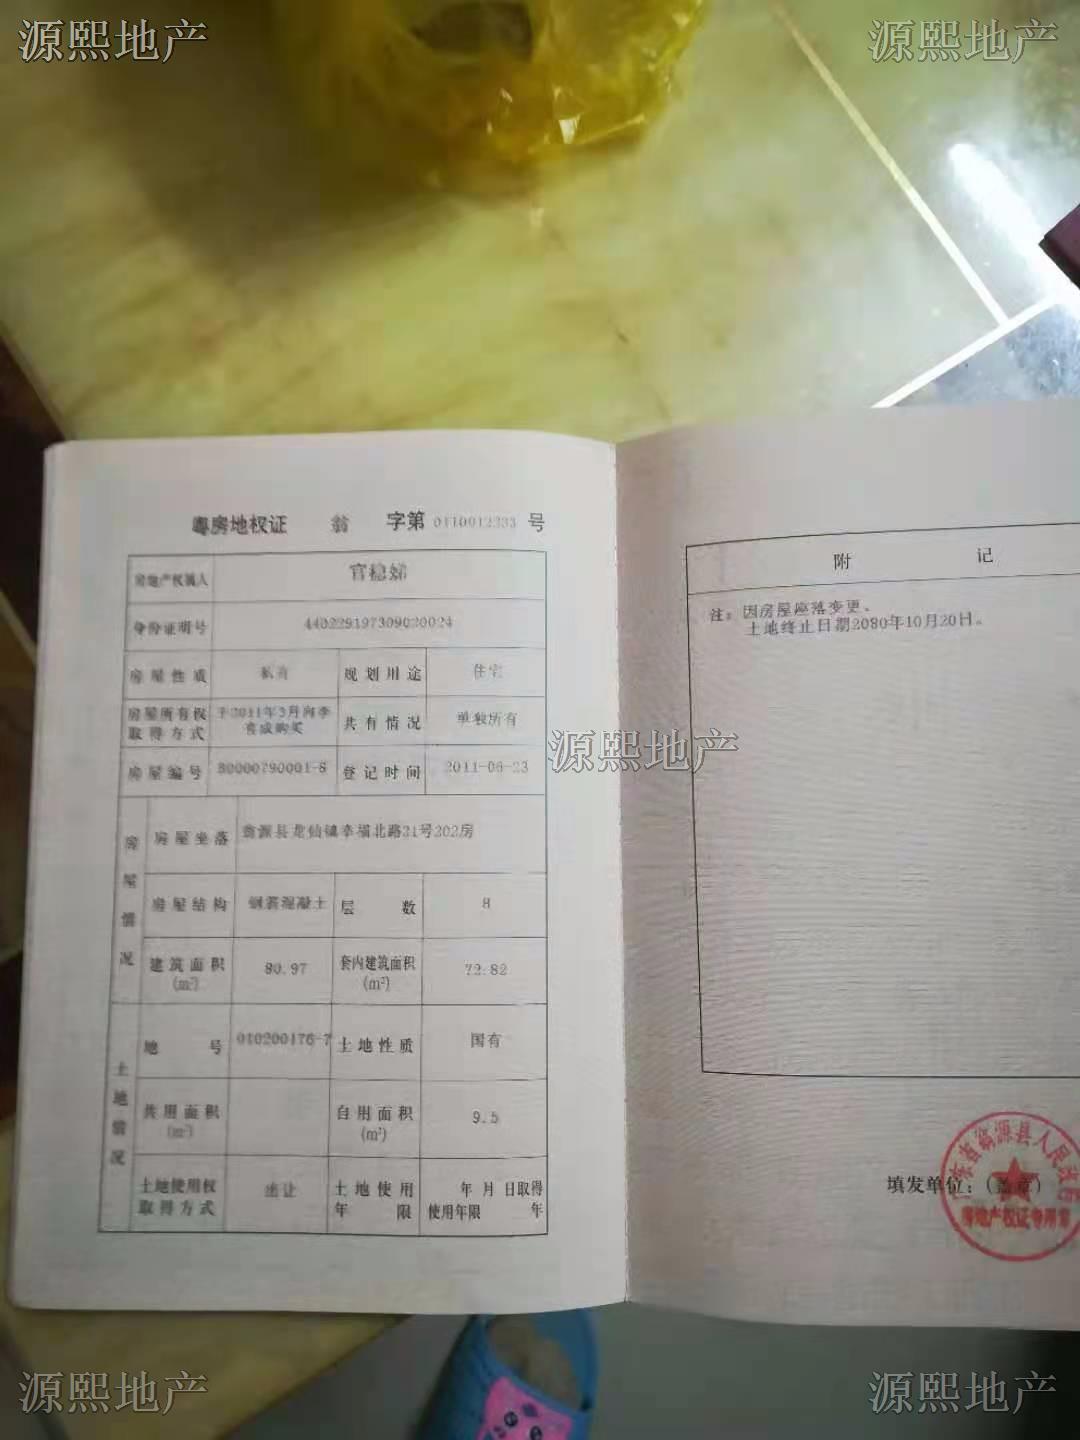 源熙地产
源熙地产
粤房地权证 翁 字第 0110012333 号
房地产权属人 官稳娣
身份证明号 440229197309020024
房屋性质 私有 规划用途 住宅
房屋所有权取得方式 于2011年3月向李 购买 共有情况 单独所有
房屋编号 80000790001-8 登记时间 2011-06-23
房屋情况
房屋坐落 翁源县龙仙镇幸福北路21号202房
房屋结构 钢筋混凝土 层数 8
建筑面积(m²) 80.97 套内建筑面积(m²) 72.82
土地情况
地号 010200176-7 土地性质 国有
共用面积(m²) 自用面积(m²) 9.5
土地使用权取得方式 出让 土地使用年限 年 月 日取得 使用年限 年
附记
注：因房屋座落变更、
土地终止日期2080年10月20日。
源熙地产
填发单位：(盖章)
广东省翁源县人民政府
房地产权证专用章
源熙地产
源熙地产